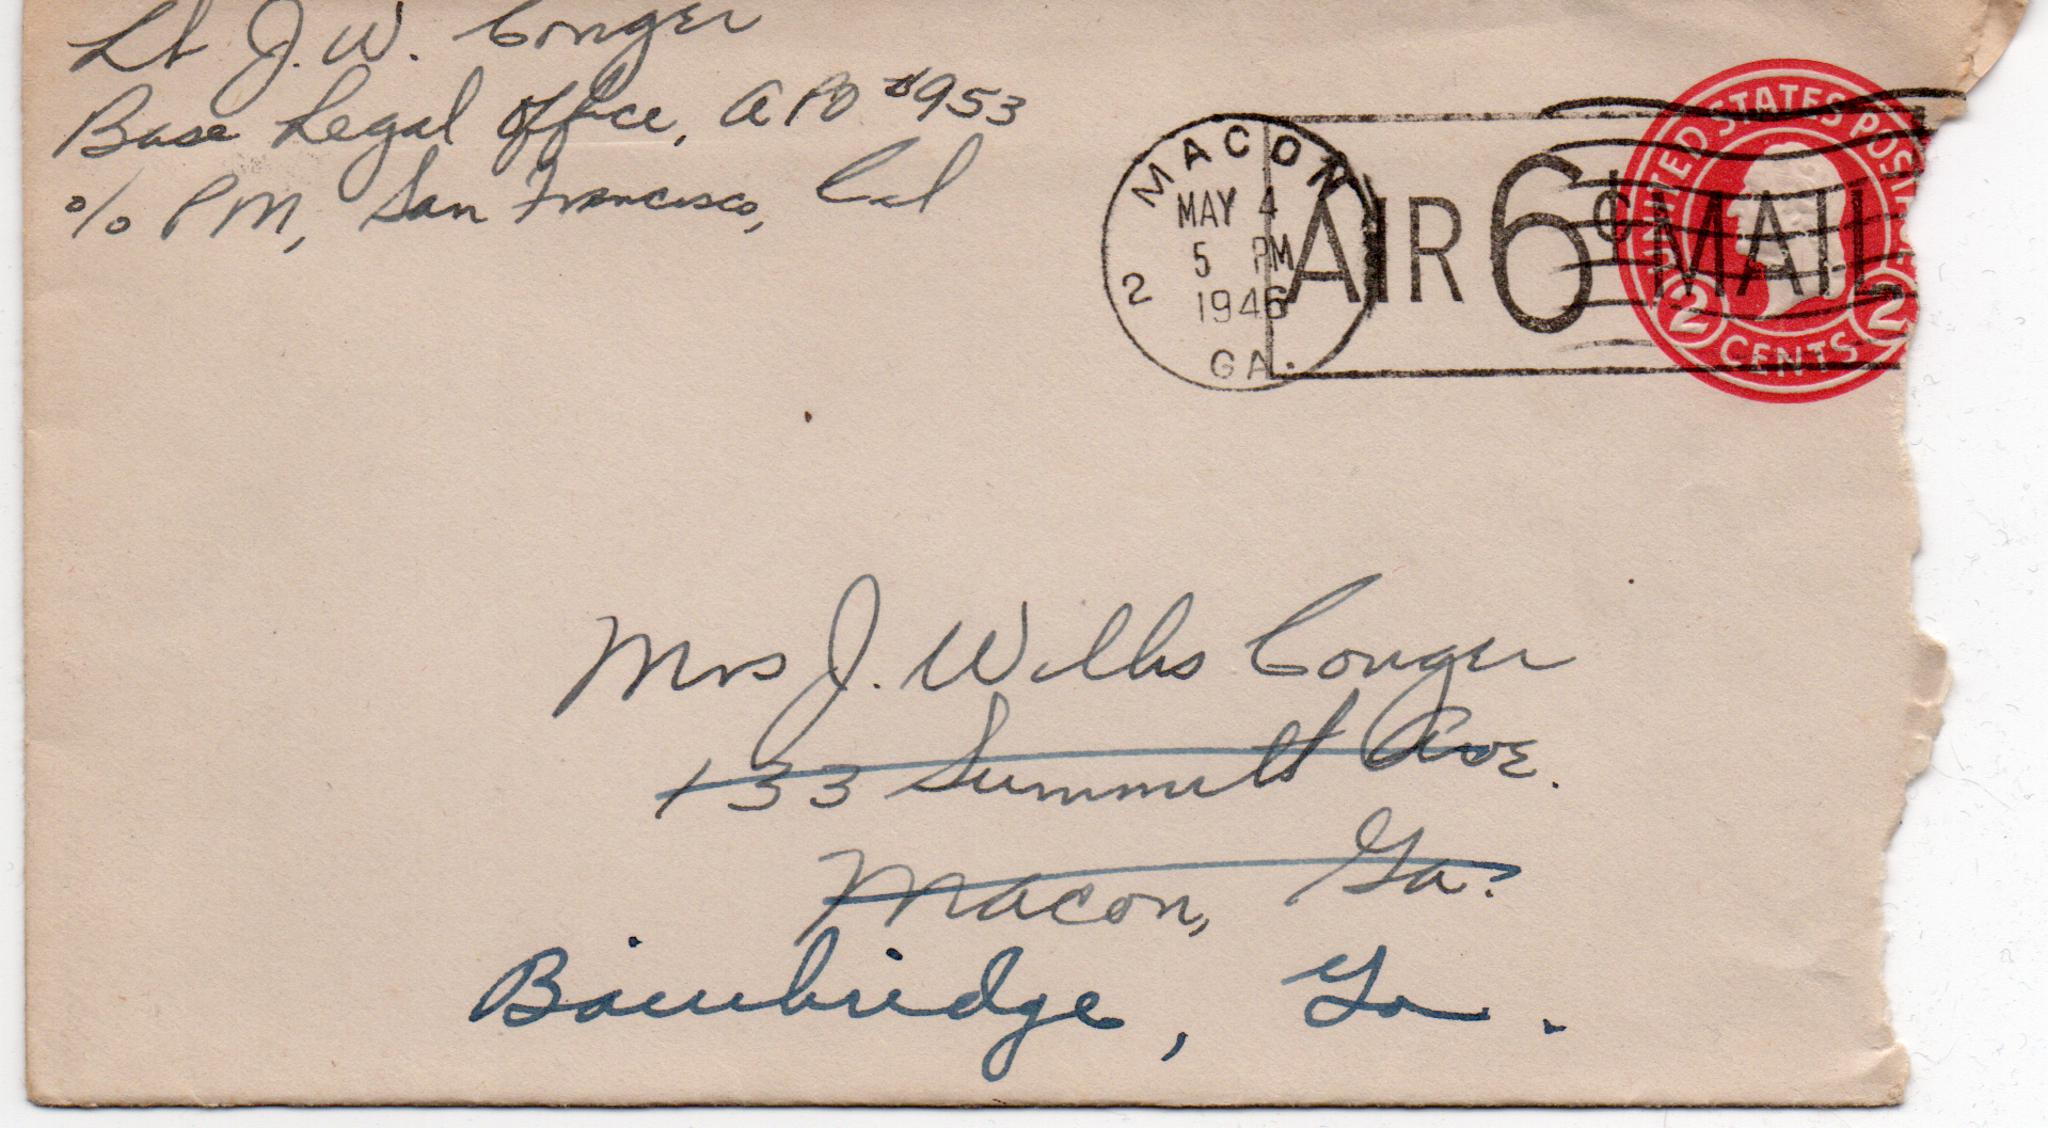 Lt J. W. Conger
Base Legal Office, APO #953
% PM, San Francisco, Cal
MACON
MAY 4
5 PM
1946
2
GA.
AIR 6¢ MAIL
UNITED STATES POSTAGE
2 CENTS 2
Mrs J. Willis Conger
133 Summitt Ave.
Macon, Ga.
Bainbridge, Ga.